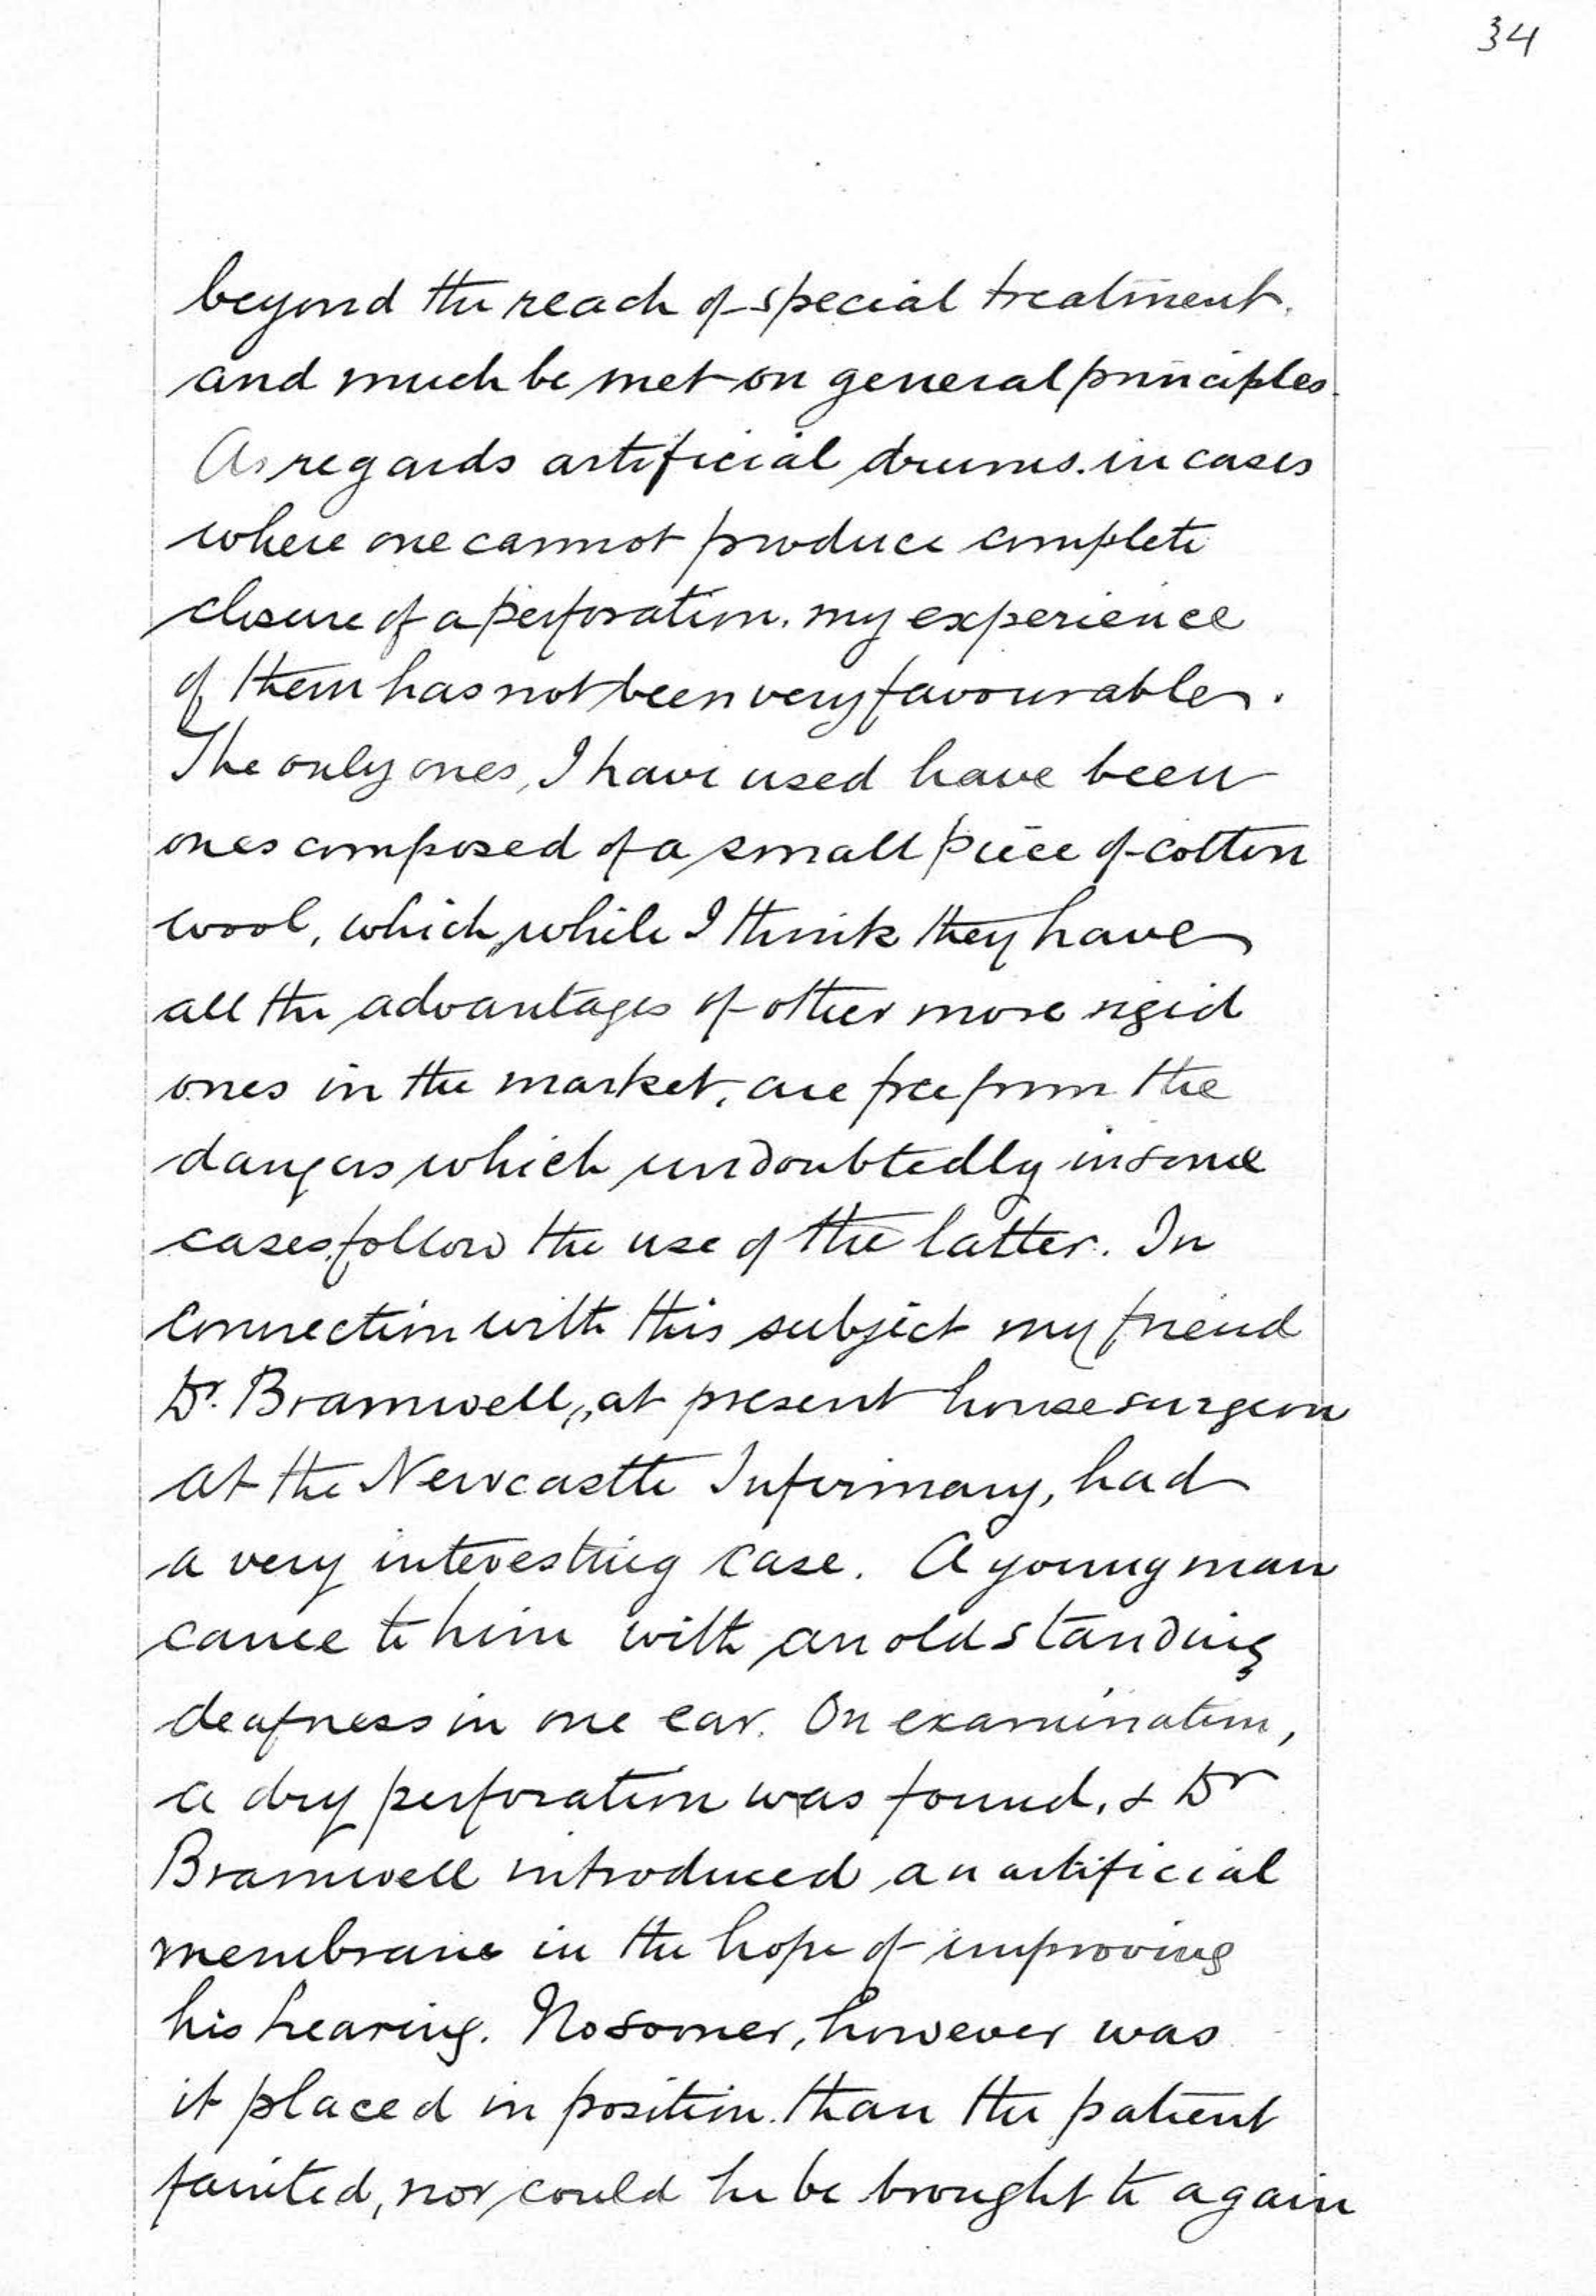 34
beyond the reach of special treatment.
and much be met on general principles.
As regards artificial drums. in cases
where one cannot produce complete
closure of a perforation. my experience
of them has not been very favourable.
The only ones, I have used have been
ones composed of a small piece of cotton
wool, which, while I think they have
all the advantages of other more rigid
ones in the market, are free from the
dangers which undoubtedly in some
cases follow the use of the latter. In
connection with this subject my friend
Dr. Bramwell, at present house surgeon
at the Newcastle Infirmary, had
a very interesting case. A young man
came to him with an old standing
deafness in one ear. On examination,
a dry perforation was found, & Dr
Bramwell introduced an artificial
membrane in the hope of improving
his hearing. No sooner, however was
it placed in position. than the patient
fainted, nor could he be brought to again